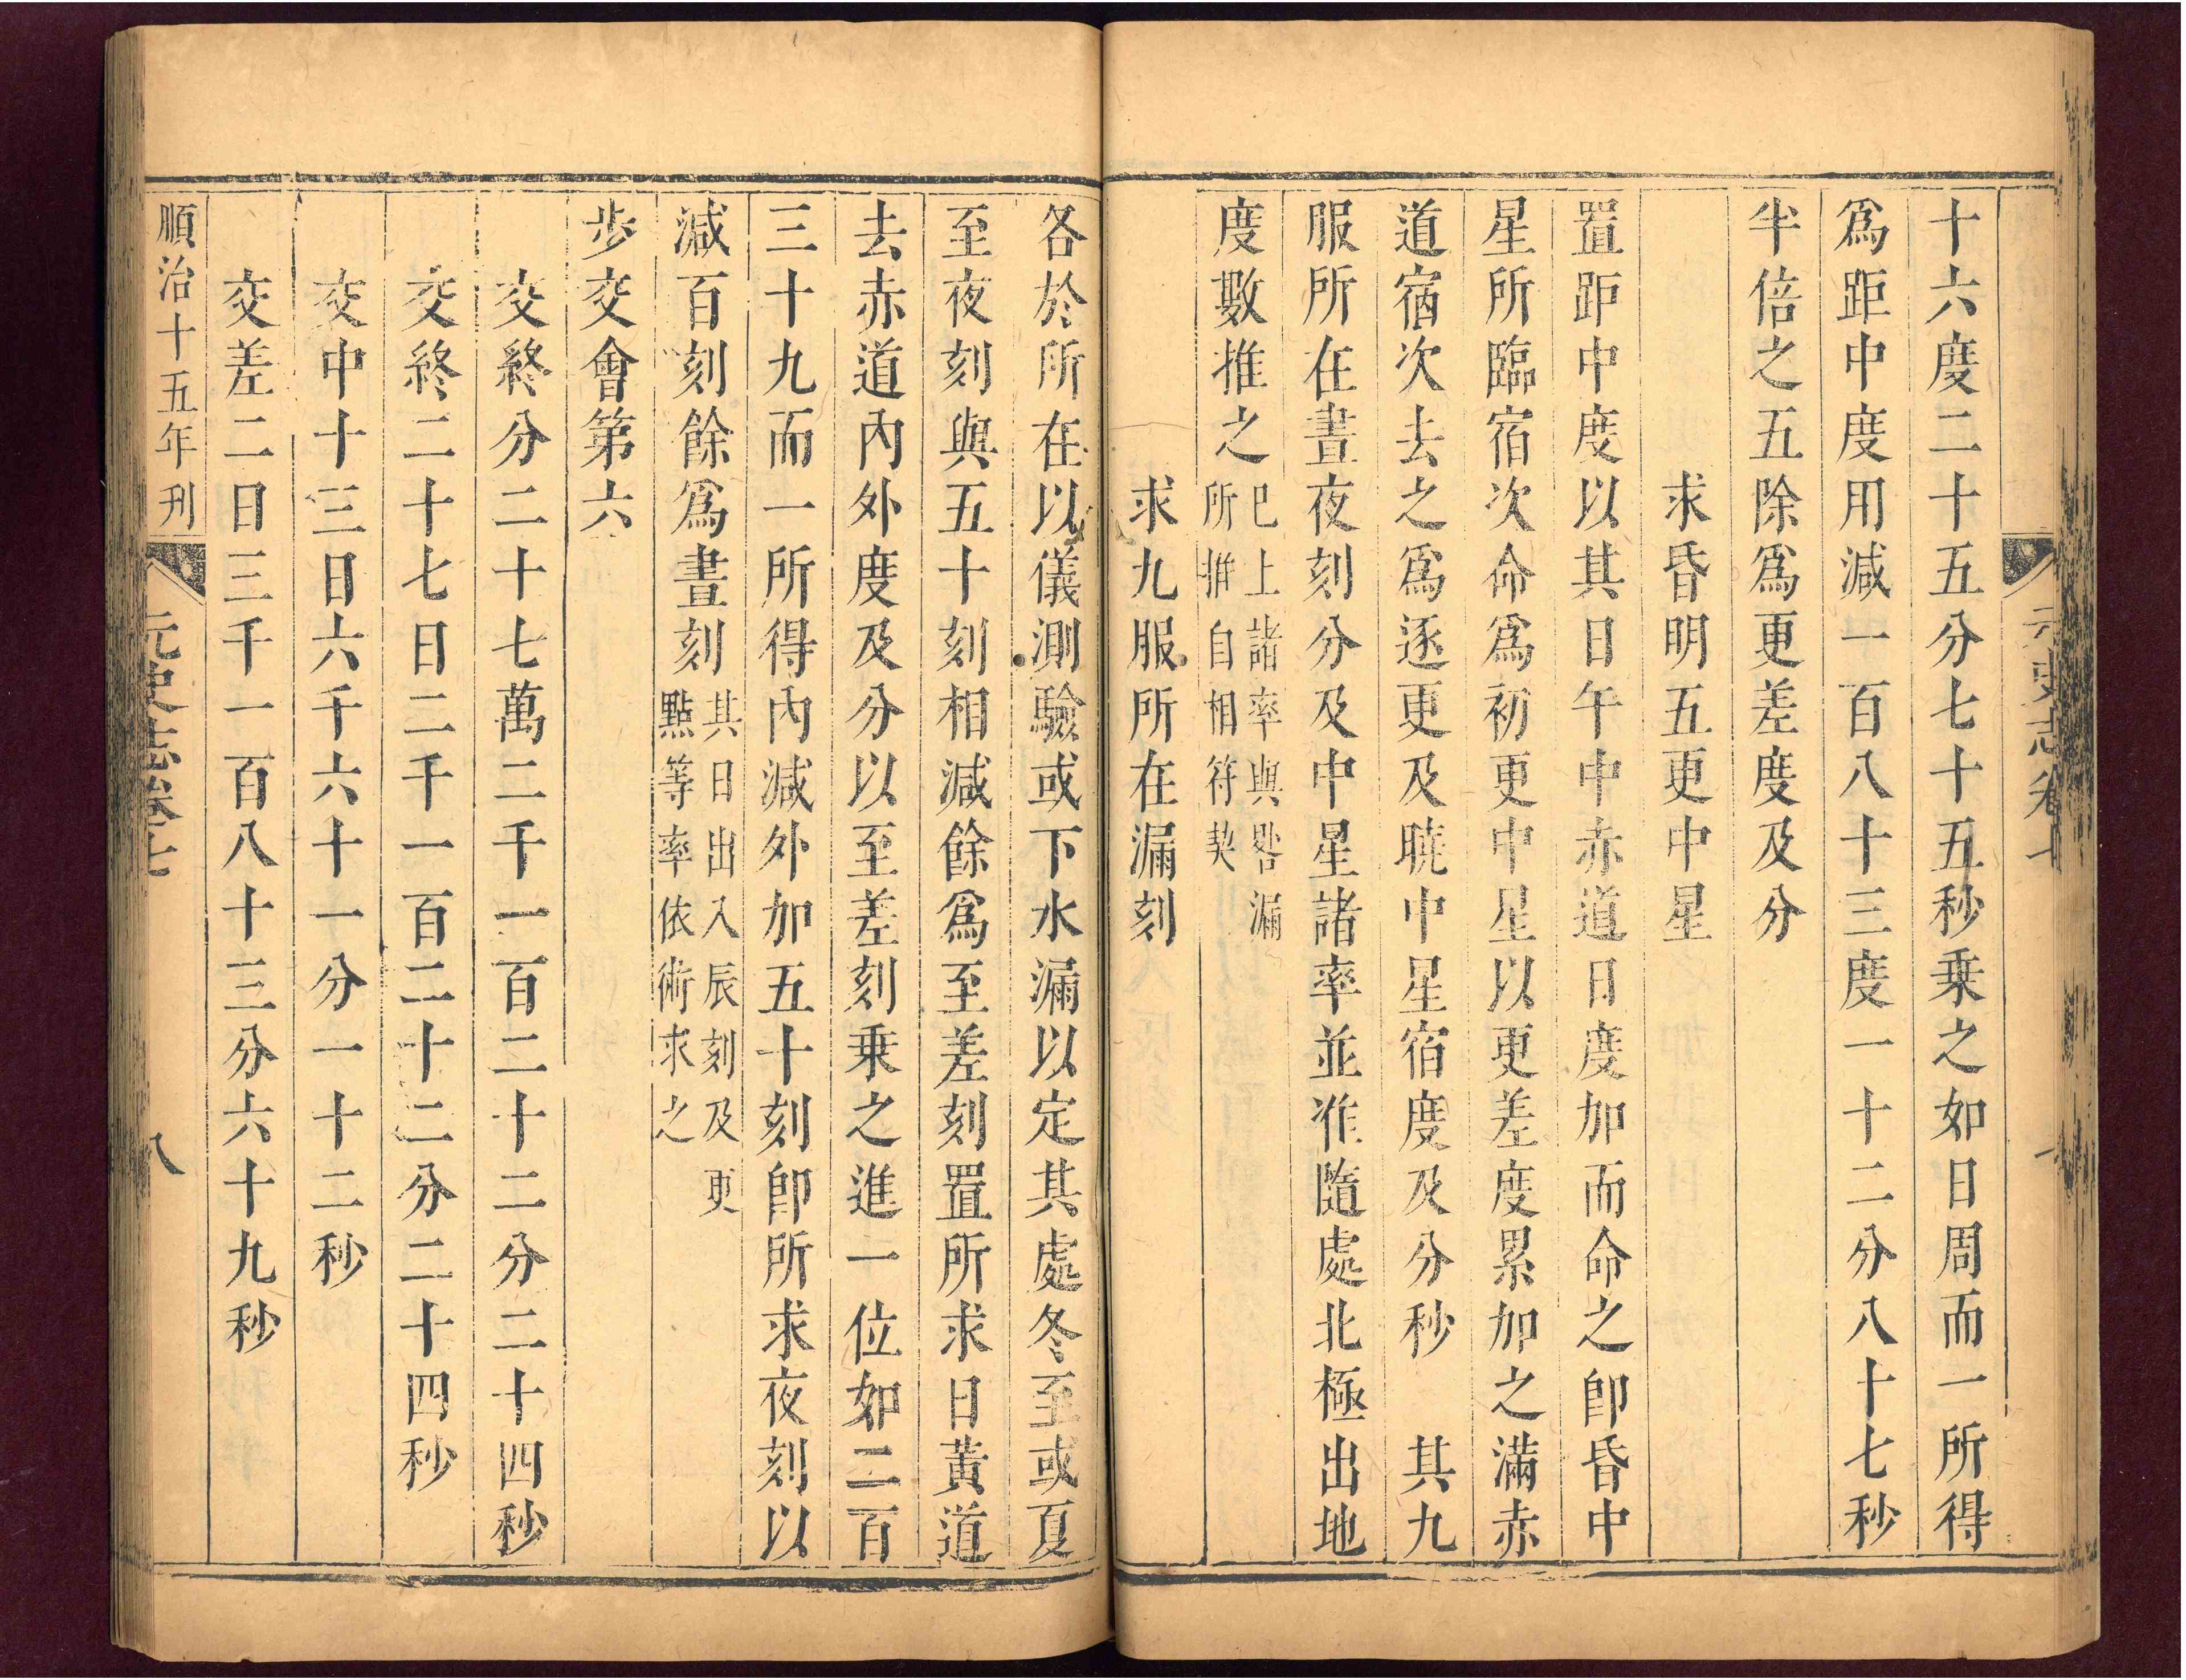 十六度二十五分七十五秒乗之如日周而一所得
爲距中度用減一百八十三度一十二分八十七秒
半倍之五除爲更差度及分
求昏明五更中星
置距中度以其日午中赤道日度加而命之卽昏中
星所臨宿次命爲初更中星以更差度累加之滿赤
道宿次去之爲逐更及曉中星宿度及分秒 其九
服所在晝夜刻分及中星諸率並准隨處北極出地
度數推之巳上諸率與晷漏
所推自相符契
求九服所在漏刻
各於所在以儀測驗或下水漏以定其處冬至或夏
至夜刻與五十刻相減餘爲至差刻置所求日黃道
去赤道內外度及分以至差刻乗之進一位如二百
三十九而一所得內減外加五十刻卽所求夜刻以
減百刻餘爲晝刻其日出入辰刻及更
點等率依術求之
步交會第六
交終分二十七萬二千一百二十二分二十四秒
交終二十七日二千一百二十二分二十四秒
交中十三日六千六十一分一十二秒
交差二日三千一百八十三分六十九秒
順治十五年刋
元史志卷七
八